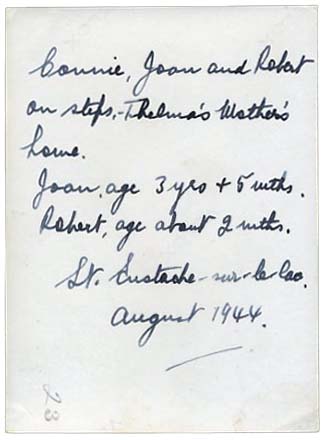 Connie, Joan and Robert
on steps, - Thelma's Mother's
home.
Joan, age 3 yrs + 5 mths.
Robert, age about 2 mths.
St. Eustache-sur-le-lac.
August 1944.
23